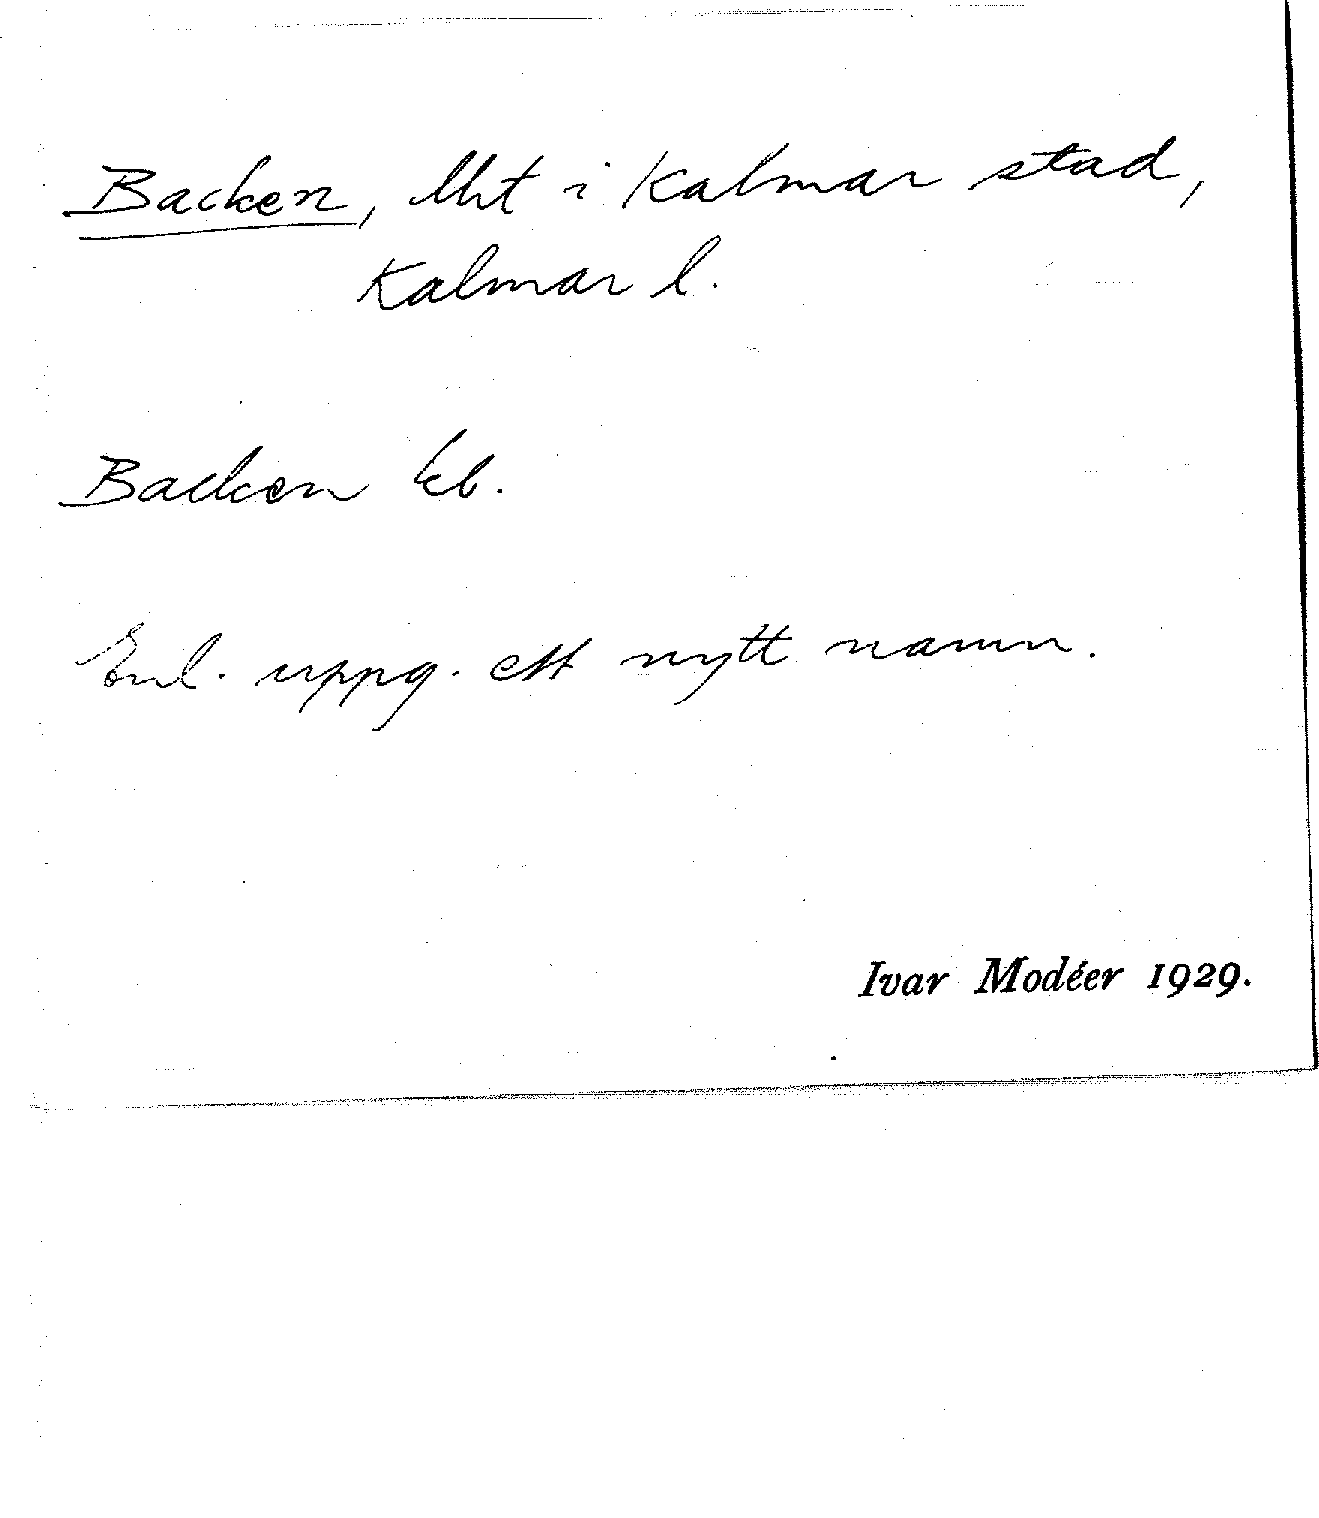 Backen, lht i Kalmar stad,
Kalmar l.
Backen kb.
Enl. uppg. ett nytt namn.
Ivar Modéer 1929.